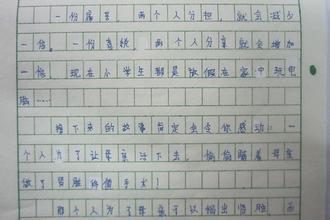 一份痛苦，两个人分担，就会减少
一倍。一份喜悦，两个人分享就会增加
一倍，现在小学生都是放假在家中玩电
脑……
接下来的故事肯定会令你感动：一
个人为了让母亲活下去，偷偷瞒着母亲
做了肾脏移植手术！
那个人为了母亲可以捐出肾脏，而